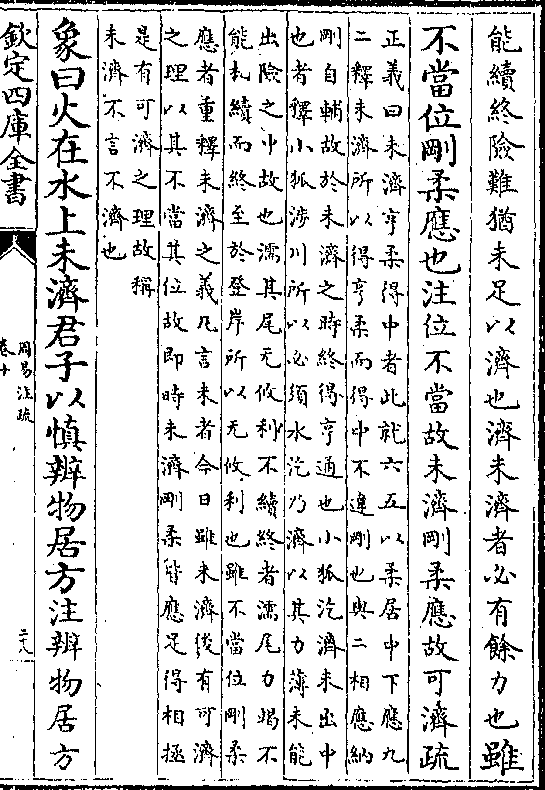 能續終險難猶未足以濟也濟未濟者必有餘力也雖
不當位剛柔應也注位不當故未濟剛柔應故可濟疏
正義曰未濟亨柔得中者此就六五以柔居中下應九
二釋未濟所以得亨柔而得中不違剛也與二相應納
剛自輔故於未濟之時終得亨通也小狐汔濟未出中
也者釋小狐渉川所以必須水汔乃濟以其力薄未能
出險之中故也濡其尾无攸利不續終者濡尾力竭不
能札續而終至於登岸所以无攸利也雖不當位剛柔
應者重釋未濟之義凡言未者今日雖未濟後有可濟
之理以其不當其位故即時未濟剛柔皆應足得相拯
是有可濟之理故稱
未濟不言不濟也
象曰火在水上未濟君子以慎辨物居方注辨物居方
欽定四庫全書
周易注疏
卷十
二十八